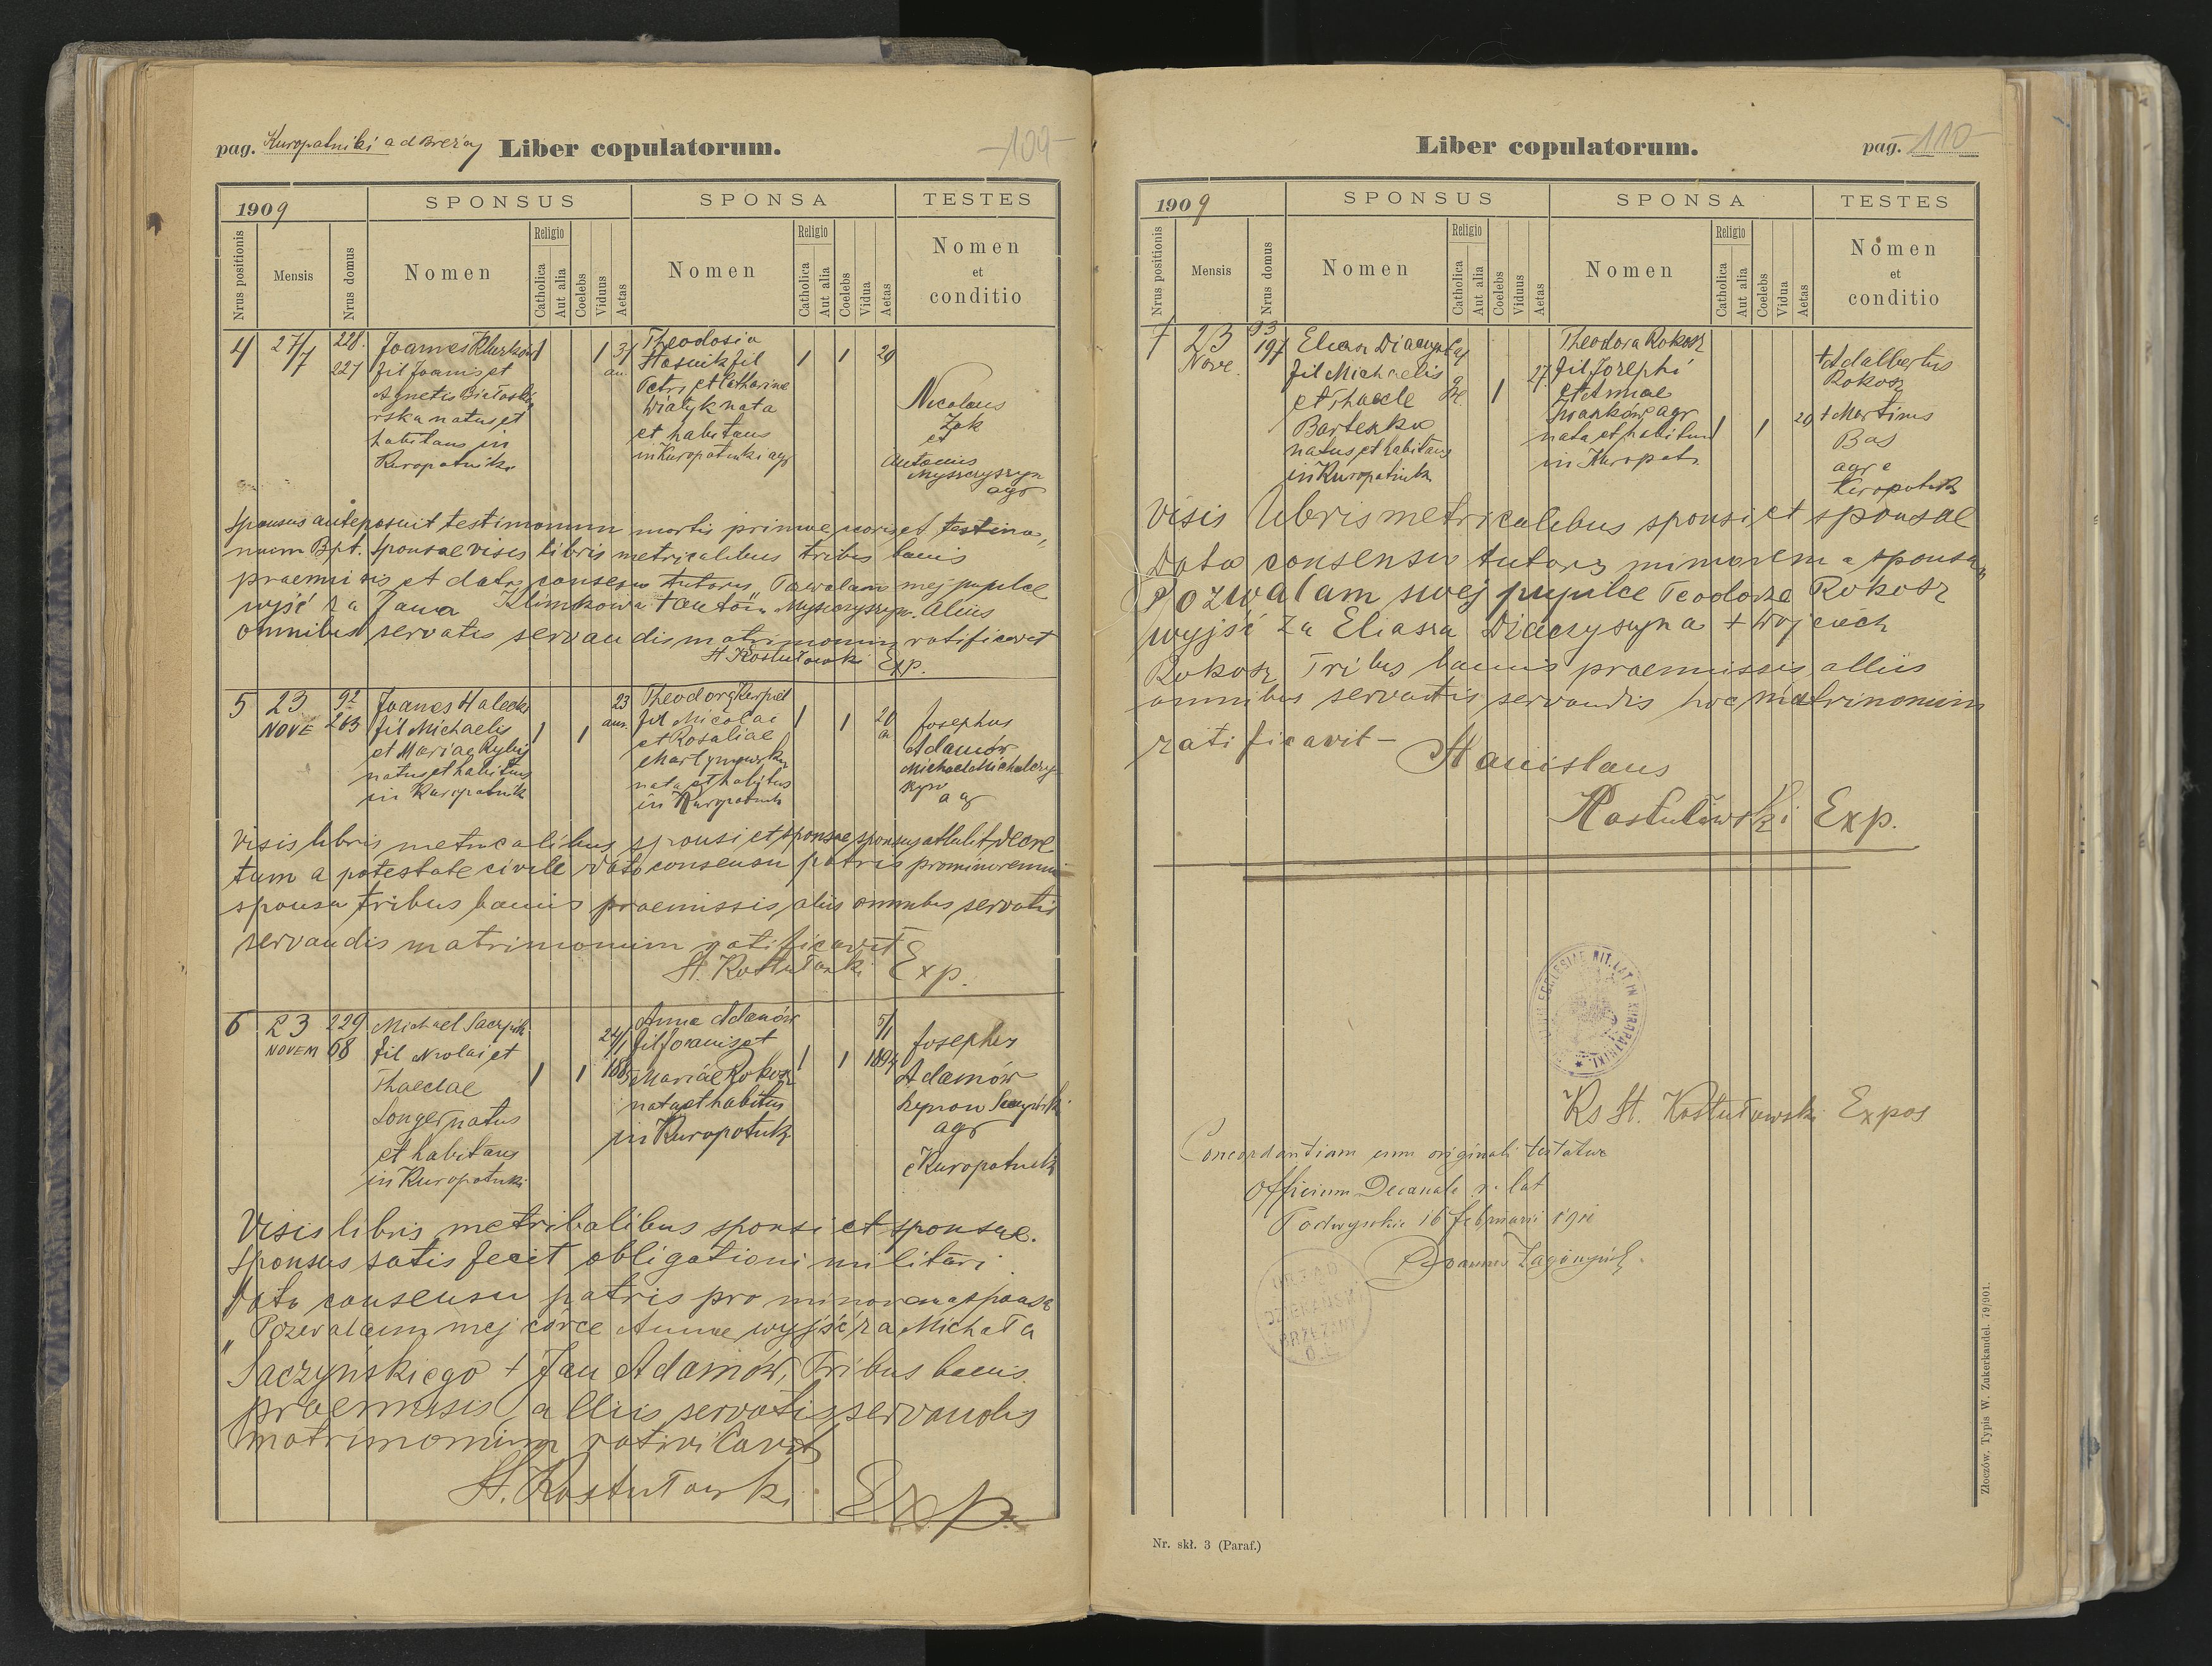 pag. Kuropatniki ad Breżay Liber copulatorum. -109-
1909 SPONSUS SPONSA TESTES
Nrus positionis Mensis Nrus domus Nomen Religio Catholica Aut alia Coelebs Viduus Aetas Nomen Religio Catholica Aut alia Coelebs Vidua Aetas Nomen et conditio
4 27/7 228. 221
Joannes
fil Joannis et
Agnetis
natus et
habitans in
Kuropatniki
1 1 31 an.
Theodosia
Hośnik fil
Petri et Catharine
Wiatyk nata
et habitans
in Kuropatniki agr
1 1 29
Nicolaus
Żak
et
Antonius
Myszczyszyn
agr
Sponsus anteposuit testimonium mortis primae uxoris et testimo,,
nium Bpt. Sponsae visis libris metricalibus tribus banis
praemisis et dato consesu tutoris Pozwalam mej pupilce
wyjść za Jana Klimkowa + Antoni Myszczyszyn. Aliis
omnibus servatis servandis matrimonium ratificavit
St Kostułowski Exp.
5 23 NOVE 92 263
Joanes Halecki
fil Michaelis
et Mariae Rybij
natus et habitans
in Kuropatnik
1 1 23 ann.
Theodora
fil Nicolai
et Rosaliae
nata et habitus
in Kuropatnik
1 1 20 a
Josephus
Adamów
Michael Michalczy
szyn
ag
Visis libris metricalibus sponsi et sponsae sponsus attulit decre
tum a potestate civile dato consensu patris pro minorenni
sponsa tribus banis praemissis aliis omnibus servatis
servandis matrimonium ratificavit
St. Kostułowski Exp.
6 23 NOVEM 229 68
Michael
fil Nicolai et
Thaeclae
Longer natus
et habitans
in Kuropatniki
1 1 24/1 188
Anna Adamów
fil Joannis et
Mariae Rokosz
nata et habitus
in Kuropatnik
1 1 5/1 1894
Josephus
Adamów
Saczyński
agr
e Kuropatnik
Visis libris metricalibus sponsi et sponsae.
Sponsus satis fecit obligationi militari.
Dato consensu patris pro minorena sponsa
„Pozwalam mej córce Annie wyjść za Michała
Saczyńskiego + Jan Adamów, Tribus banis
praemisis alliis servatis servandis
matrimonium
St. Kostułowski Exp.
Liber copulatorum. pag. -110-
1909 SPONSUS SPONSA TESTES
Nrus positionis Mensis Nrus domus Nomen Religio Catholica Aut alia Coelebs Viduus Aetas Nomen Religio Catholica Aut alia Coelebs Vidua Aetas Nomen et conditio
7 23 Nove. 93 197
Elias
fil Michaelis
et Thaecle
Bartexko
natus et habitans
in Kuropatnik
1 27
Theodora Rokosz
fil Josephi
et Annae
Iwanków agr
nata et habitans
in Kuropat.
1 1 20
+ Adalbertus
Rokosz
+ Martinus
Bas
agr e
Kuropatnik
Visis libris metricalibus sponsi et sponsae
Dato consensu tutoris minorem a sponsa,,
Pozwalam swej pupilce Teodorze Rokosz
wyjść za Eliasza Diaczyszyna + Wojciech
Rokosz Tribus banis praemissis alliis
omnibus servatis servandis hoc matrimonium
ratificavit-
Stanislaus
Kostułowski Exp.
ECCLESIAE RIT. LAT. IN KUROPATNIKI
Ks St. Kostułowski Expos
Concordantiam cum originali testatur
Officium Decanale r. lat
Podwysokie 16 februarii 1910
URZĄD
DZIEKAŃSKI
BRZEŻANY
O. Ł.
Nr. skł. 3 (Paraf.)
Złoczów. Typis W. Zukerkandel. 79/901.